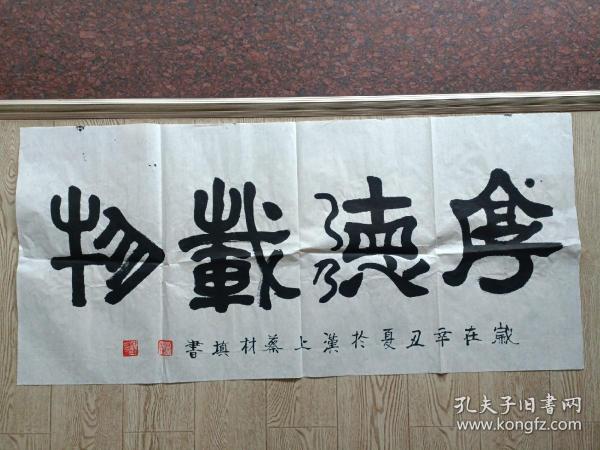 厚德載物
歲在辛丑夏於漢上蔡材填書
孔夫子旧書网
www.kongfz.com